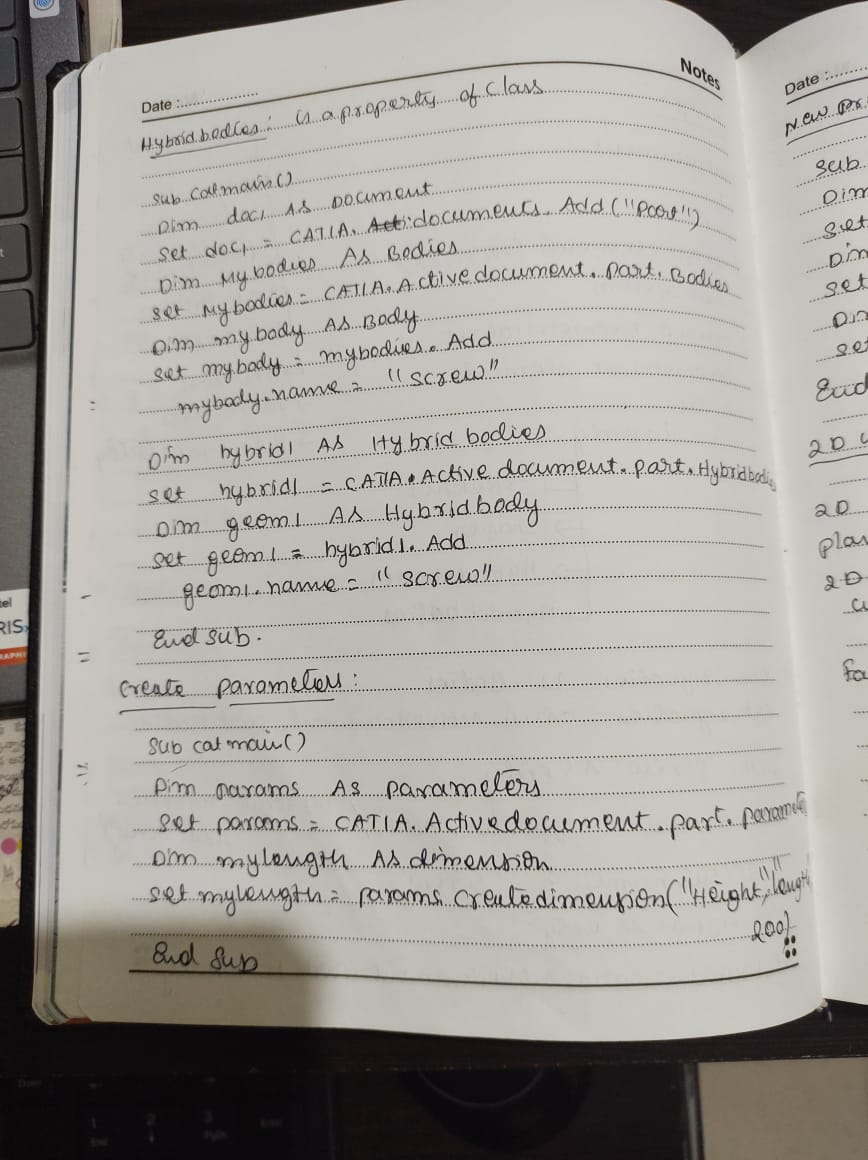 Notes
Date :
Hybridbodies: is a property of class
Sub catmain()
Dim doc1 As Document
Set doc1 = CATIA. documents. Add ("Part")
Dim Mybodies As Bodies
Set Mybodies = CATIA. Active document. part. Bodies
Dim mybody As Body
Set mybody = mybodies. Add
mybody.name = "screw"
Dim hybrid1 As Hybrid bodies
Set hybrid1 = CATIA. Active document. part. Hybridbodie
Dim geom1 As Hybridbody
Set geom1 = hybrid1. Add
geom1.name = "screw"
End sub.
Create parameters:
Sub catmain()
Dim params As parameters
Set params = CATIA. Activedocument. part. paramete
Dim mylength As dimension
Set mylength = params. Createdimension("Height", "length"
200)
End Sub
Date :
New Pr
Sub
Dim
Set
Dim
Set
Dim
Se
End
2D
2D
plan
2D
fo
tel
RIS